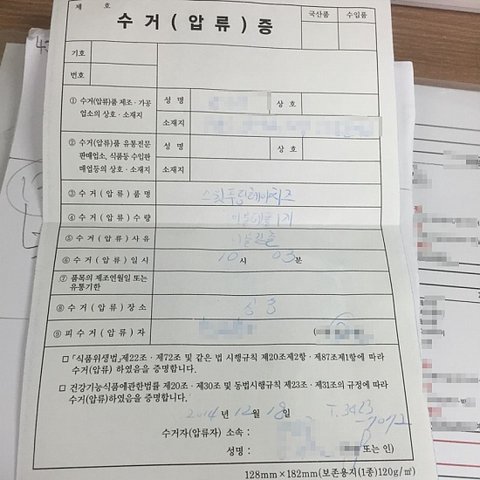 제 호
수 거 ( 압 류 ) 증
국산품 수입품
기호
번호
① 수거(압류)품 제조·가공
업소의 상호·소재지
성 명 상 호
소재지
② 수거(압류)품 유통전문
판매업소, 식품등 수입판
매업등의 상호·소재지
성 명 상 호
소재지
③ 수 거 ( 압 류 ) 품 명
④ 수 거 ( 압 류 ) 수량
⑤ 수 거 ( 압 류 ) 사유
⑥ 수 거 ( 압 류 ) 일시 10 시 03 분
⑦ 품목의 제조연월일 또는
유통기한
⑧ 수 거 ( 압 류 ) 장소
⑨ 피수거 ( 압류 ) 자
□ 「식품위생법」제22조·제72조 및 같은 법 시행규칙 제20조제2항·제87조제1항에 따라
수거(압류) 하였음을 증명합니다.
□ 건강기능식품에관한법률 제20조·제30조 및 동법시행규칙 제23조·제31조의 규정에 따라
수거(압류)하였음을 증명합니다.
2014 년 12 월 18 일
수거자(압류자) 소속 :
성명 : 또는 인)
128mm×182mm(보존용지(1종)120g/㎡)